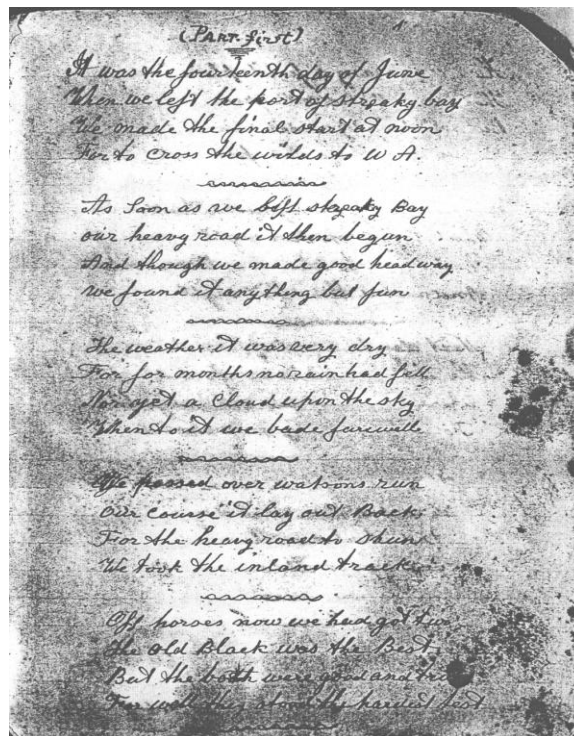 (Part. first)
It was the fourteenth day of June
When we left the port of streaky bay
We made the final start at noon
For to cross the wilds to W A.
As Soon as we left streaky Bay
our heavy road it then begun
And though we made good headway
we found it anything but fun
The weather it was very dry
For for months no rain had fell
Nor yet a Cloud upon the sky
When to it we bade farewell
We passed over watsons run
Our course it lay out Back
For the heavy road to shun
We took the inland track
Off horses now we had got two
The old Black was the Best
But the both were good and true
For well they stood the hardest test